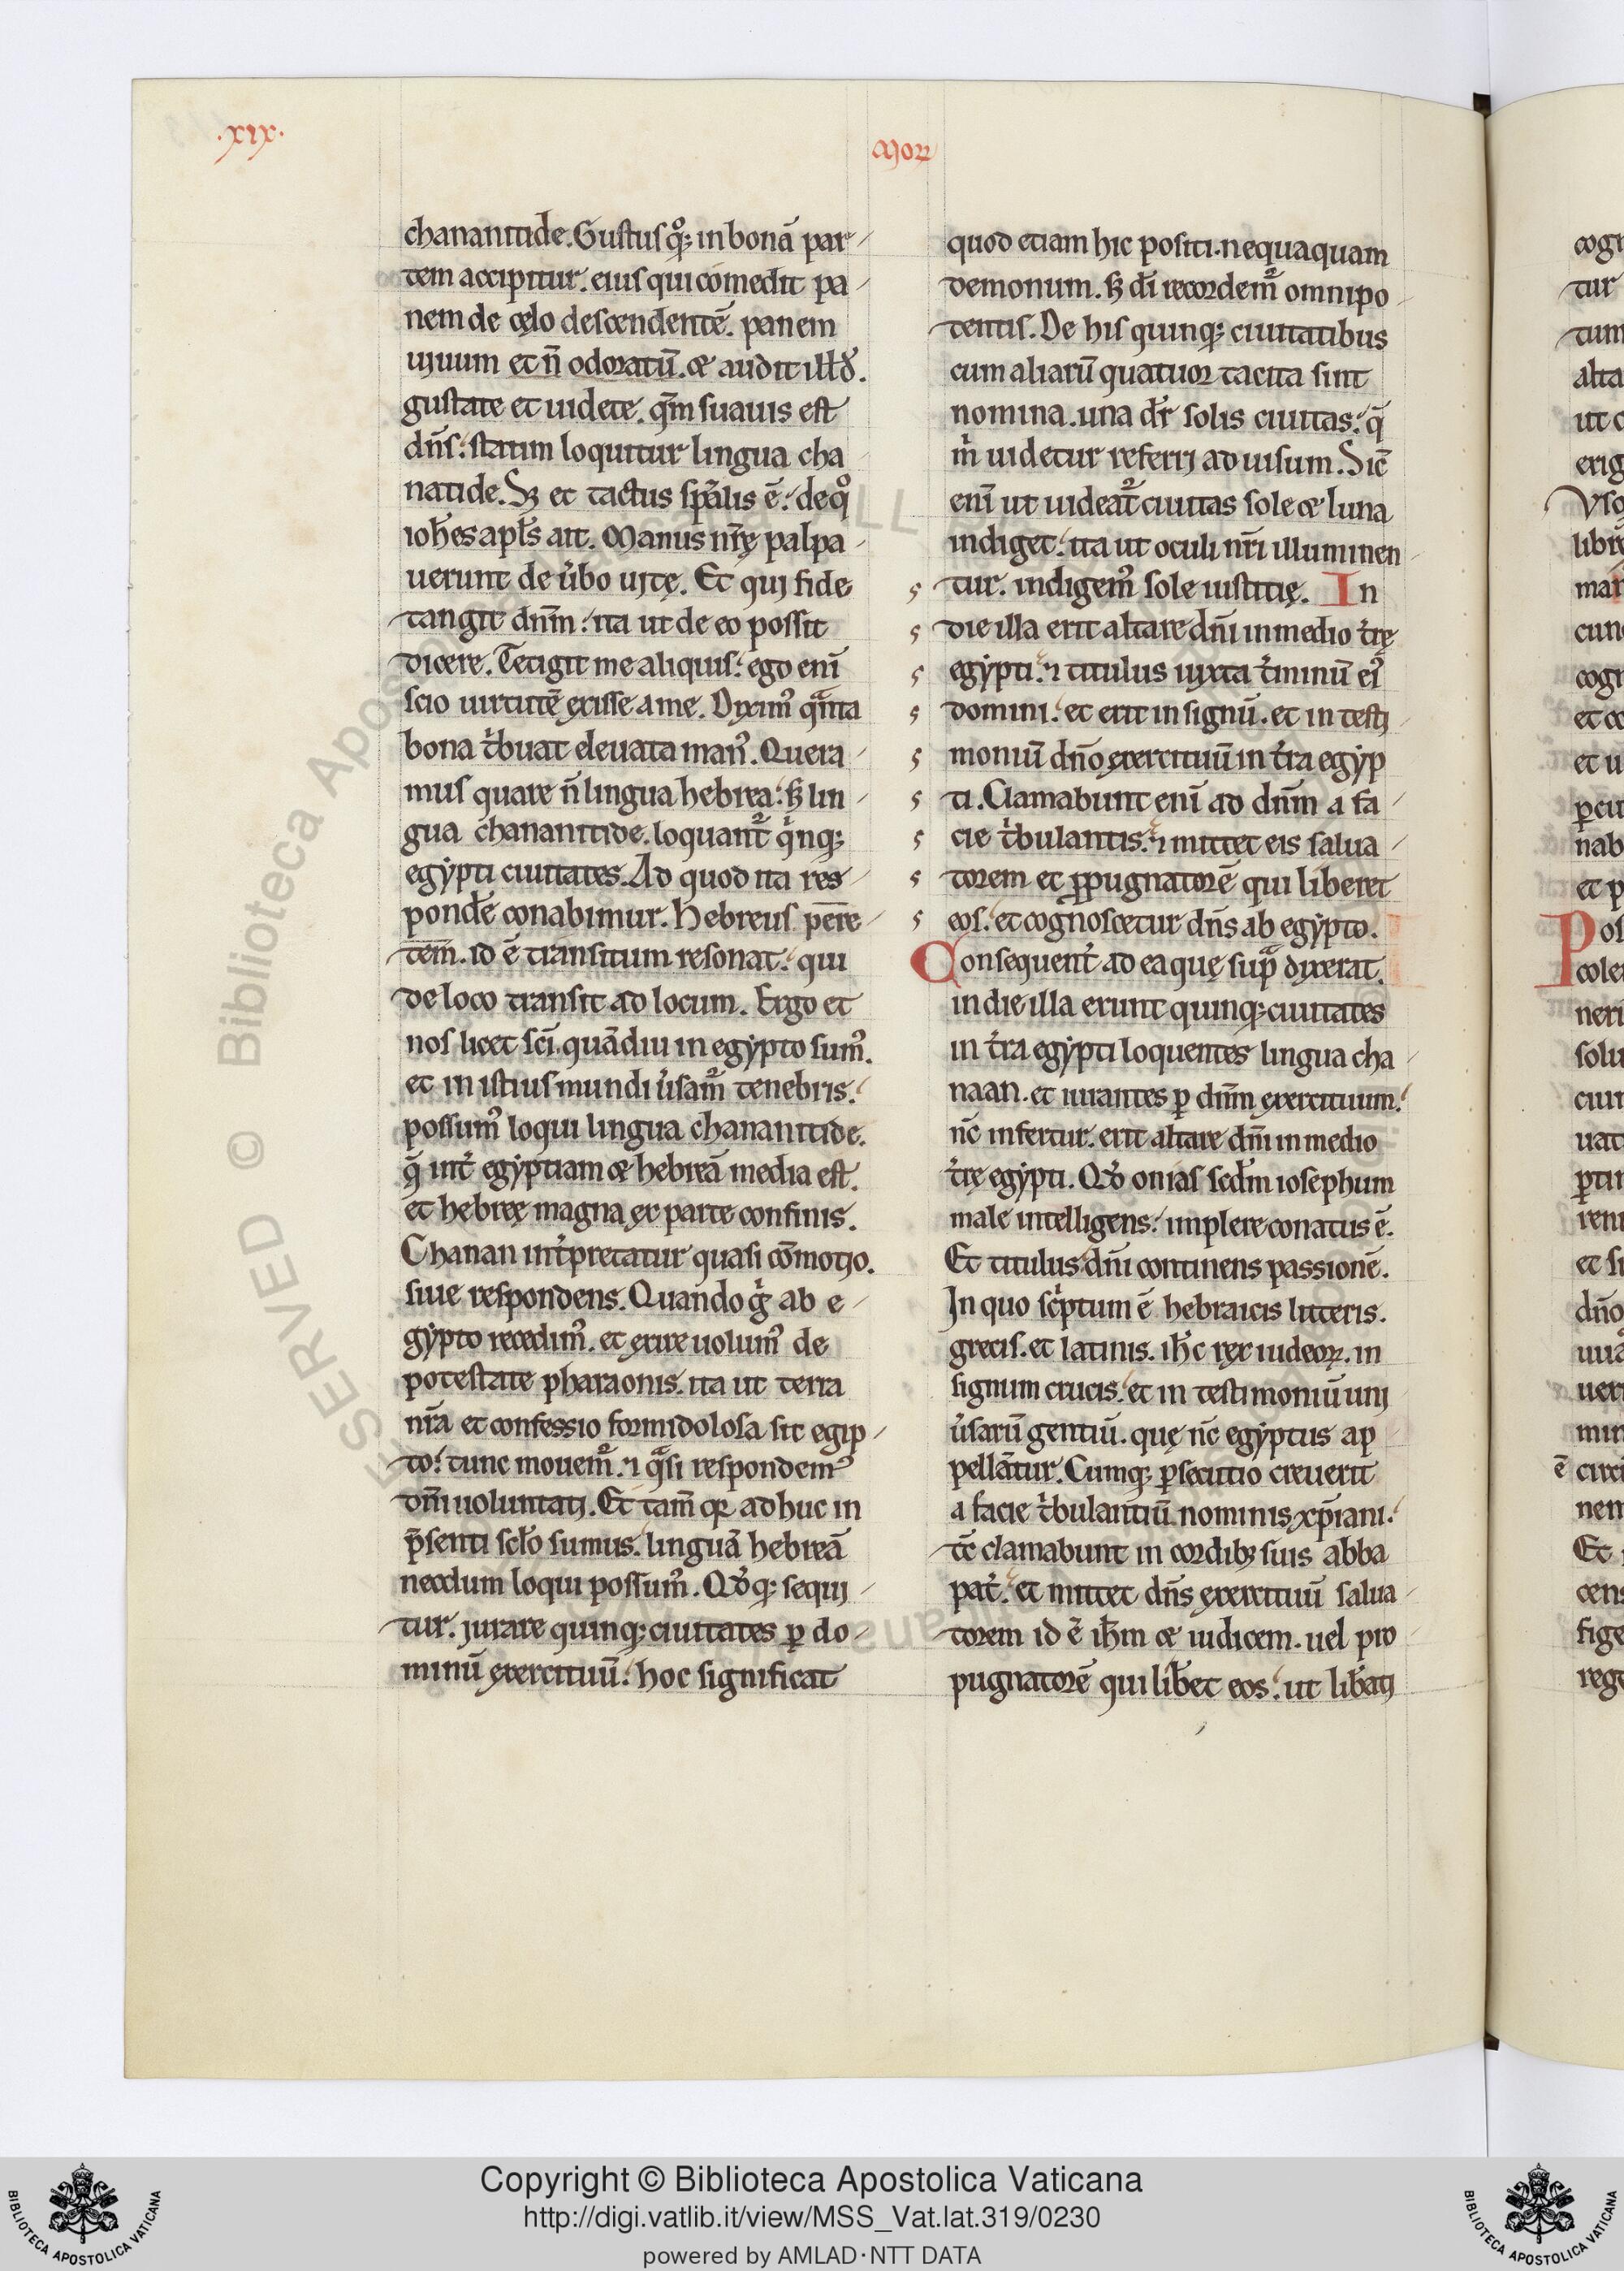 .xix.
Morꝝ
chananitide. Gustus qͦꝫ in bonā par
tem accipitur. eius qui comedit pa
nem de cęlo descendentē. panem
uiuum et n̄ odoratū. & audit illđ.
gustate et uidete. qm̄ suauis est
dn̄s: statim loquitur lingua cha
natide. Sꝫ et tactus sp̄alis ē: de qͦ
ioh̄es apl̄s ait. Manus nr̄ę palpa
uerunt de u̓bo uitę. Et qui fide
tangit dn̄m: ita ut de eo possit
dicere. Tetigit me aliquis: ego eni̅
scio uirtutē exisse a me. Diximꝰ qᵃnta
bona tͥbuat eleuata manꝰ. Quera
mus quare n̄ lingua hebrea: sꝫ lin
gua chananitide. loquant᷑ qͥnqꝫ
egypti ciuitates. Ad quod ita res
pondē conabimur. Hebreus pere
tem̄. id ē transitum resonat: qui
de loco transit ad locum. Ergo et
nos licet sc̄i. quādiu in egypto sumꝰ.
et in istius mundi u̓sam᷑ tenebris:
possumꝰ loqui lingua chananitide.
q̄ int̓ egyptiam & hebreā media est.
et hebreę magna ex parte confinis.
Chanan int̓pretatur quasi cōmotio.
siue respondens. Quando gͥ ab e
gypto recedimꝰ. et exire uolumꝰ de
potestate pharaonis. ita ut terra
nr̄a et confessio formidolosa sit egip
to: tunc mouem᷑. ⁊ qᵃsi respondemꝰ
dn̄i uoluntati. Et tam̄ qꝛ adhuc in
p̄senti scl̄o sumus: linguā hebreā
necdum loqui possumꝰ. Qđqꝫ sequi
tur. iurare quinqꝫ ciuitates ꝑ do
minū exercituū: hoc significat
quod etiam hic positi. nequaquam
demonum. sꝫ dī recordem᷑ omnipo
tentis. De his quinqꝫ ciuitatibus
cum aliarū quatuor tacita sint
nomina. una dr̄ solis ciuitas: q̄
mͥ uidetur referri ad uisum. Sic̄
eni̅ ut uideat᷑ ciuitas sole & luna
indiget: ita ut oculi nr̄i illuminen
tur. indigemꝰ sole iustitię. In
die illa erit altare dn̄i in medio t̓rę
egypti: ⁊ titulus iuxta t̓minū eiꝰ
domini: et erit in signū. et in testi
moniū dn̄o exercituū in t̓ra egyp
ti. Clamabunt eni̅ ad dn̄m a fa
cie tͥbulantis: ⁊ mittet eis salua
torem et ꝓpugnatorē qui liberet
eos: et cognoscetur dn̄s ab egypto.
Consequent̓ ad ea quę supᵃ dixerat.
in die illa erunt quinqꝫ ciuitates
in t̓ra egypti loquentes lingua cha
naan. et iurantes ꝑ dn̄m exercituum:
nc̄ infertur. erit altare dn̄i in medio
t̓rę egypti. Qđ onias secd̄m iosephum
male intelligens: implere conatus ē.
Et titulus dn̄i continens passionē.
In quo scͥptum ē hebraicis litteris.
grecis. et latinis. ih̄c rex iudeoꝝ. in
signum crucis: et in testimoniū uni
u̓sarū gentiū. quę nc̄ egyptus ap
pellātur. Cumqꝫ ꝑsecutio creuerit
a facie tͥbulantiū nominis xp̄iani:
tc̄ clamabunt in cordibꝫ suis abba
pat̓: et mittet dn̄s exercituū salua
torem id ē ih̄m & iudicem. uel pro
pugnatorē qui lib̄et eos: ut lib̄ati
Copyright © Biblioteca Apostolica Vaticana
http://digi.vatlib.it/view/MSS_Vat.lat.319/0230
powered by AMLAD·NTT DATA
BIBLIOTECA APOSTOLICA VATICANA
BIBLIOTECA APOSTOLICA VATICANA